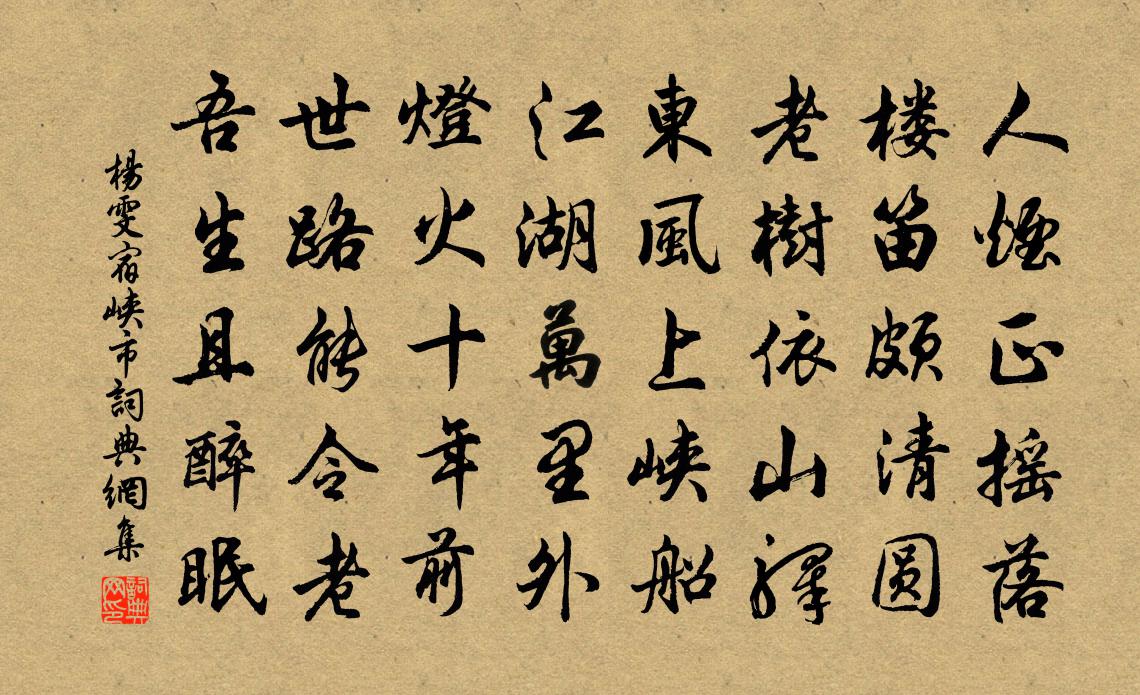 人煙正摇落
楼笛頗清圓
老樹依山驛
東風上峽船
江湖萬里外
燈火十年前
世路能令老
吾生且醉眠
楊雯宿峽市詞典網集
詞典网印